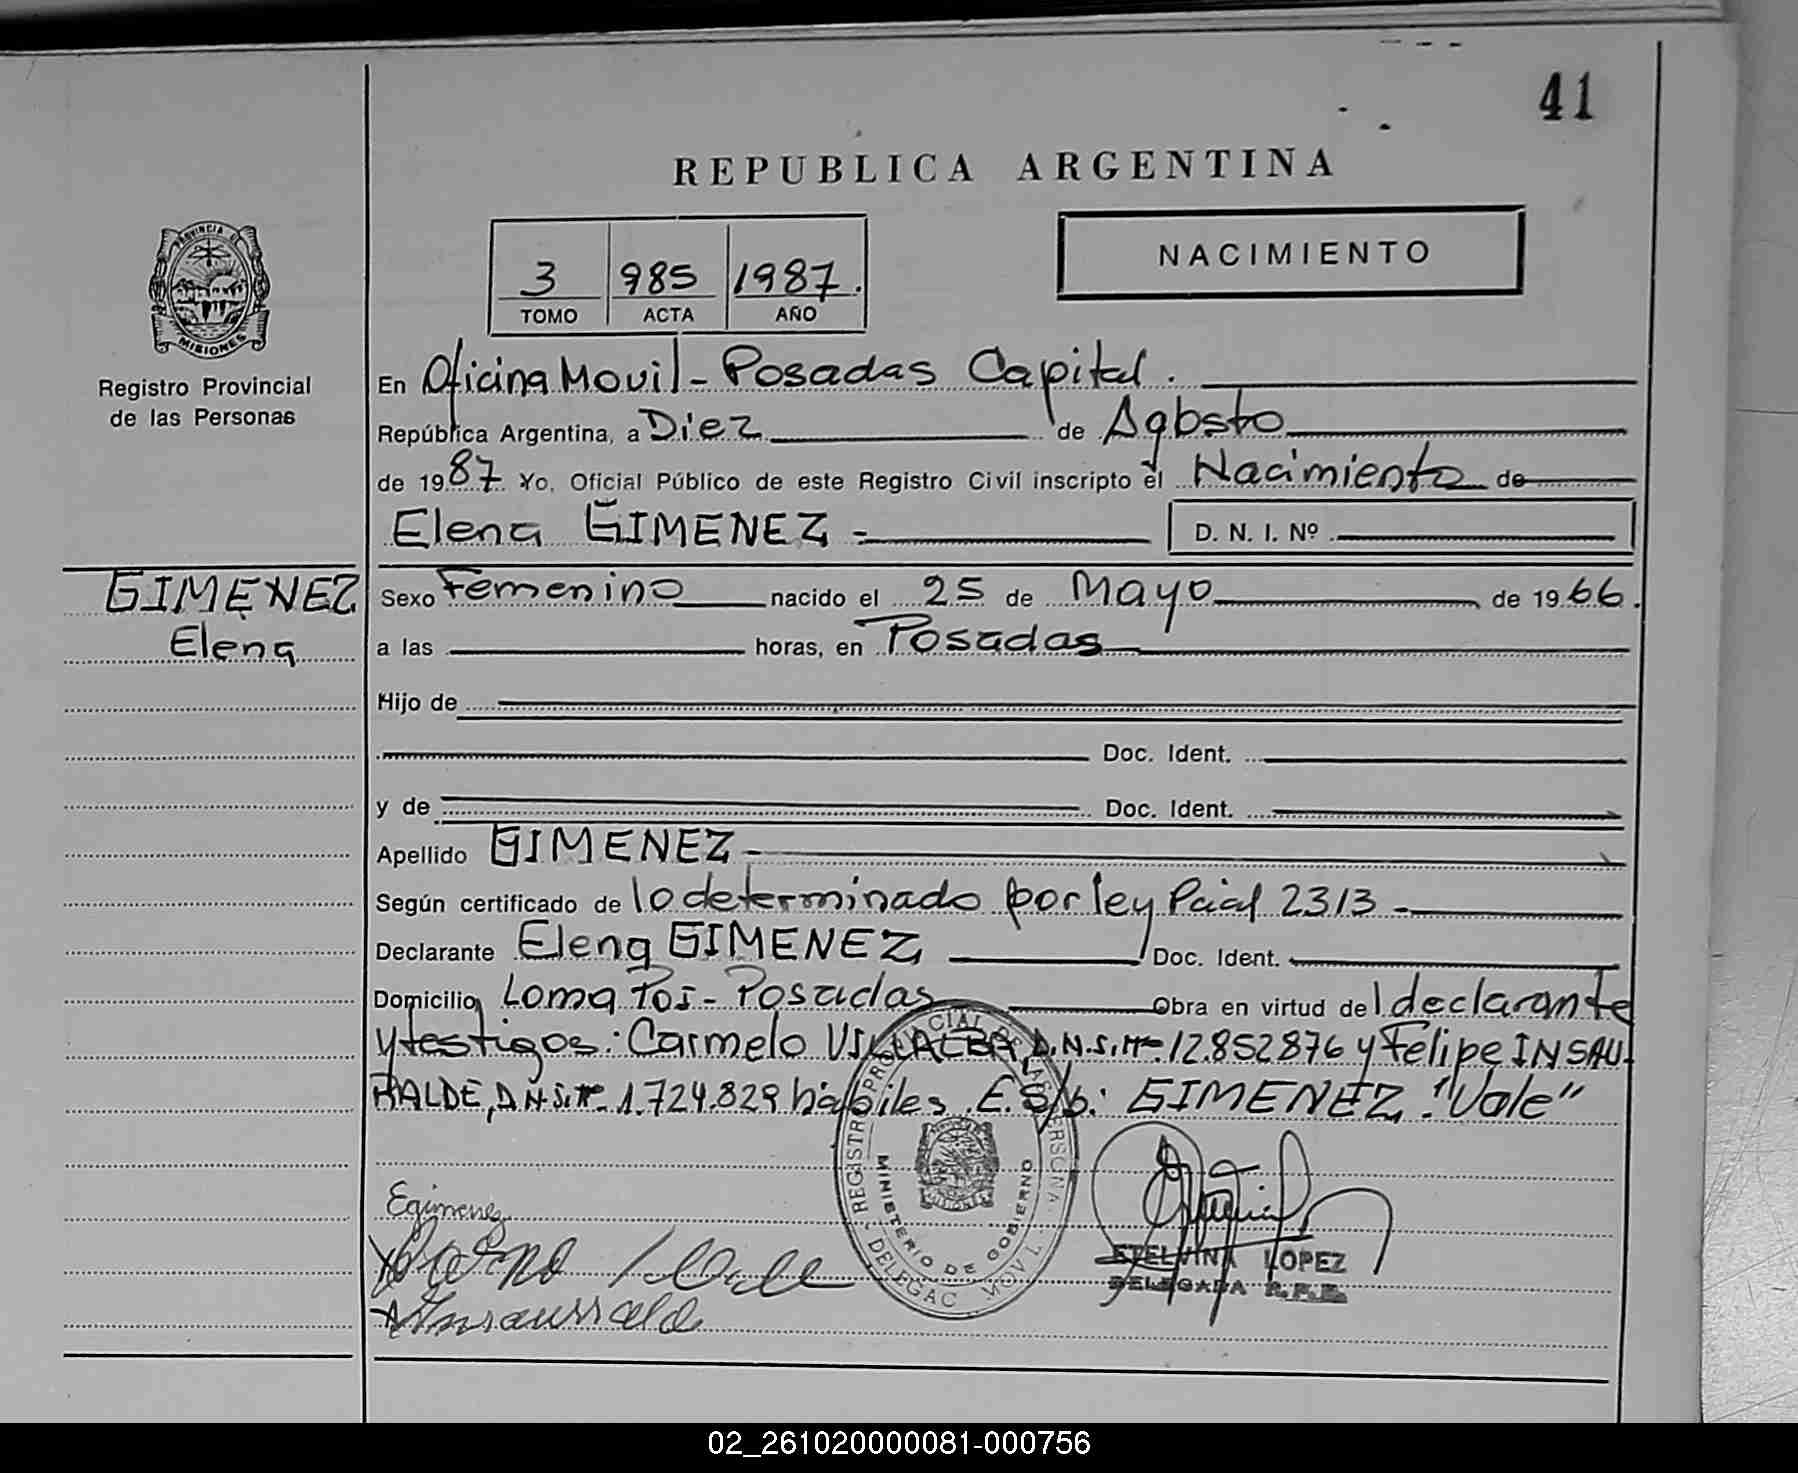 41
REPUBLICA ARGENTINA
PROVINCIA DE
MISIONES
Registro Provincial
de las Personas
3 985 1987.
TOMO ACTA AÑO
NACIMIENTO
En Oficina Movil - Posadas Capital.
República Argentina, a Diez de Agosto
de 1987 Yo, Oficial Público de este Registro Civil inscripto el Nacimiento de
Elena GIMENEZ - D. N. I. Nº
GIMENEZ
Elena
Sexo Femenino nacido el 25 de Mayo de 1966.
a las horas, en Posadas
Hijo de
Doc. Ident.
y de Doc. Ident.
Apellido GIMENEZ -
Según certificado de lo determinado por ley Pcial 2313 -
Declarante Elena GIMENEZ Doc. Ident.
Domicilio Loma Poi - Posadas Obra en virtud de l declarante
y testigos: Carmelo VILLALBA, D.N.I. Nº 12.852876 y Felipe INSAU-
RALDE, D.N.I. Nº 1.724.829 hábiles. E.S/b: GIMENEZ. "Vale"
Egimenez
Insaurralde
REGISTRO PROVINCIAL DE LAS PERSONAS
MINISTERIO DE GOBIERNO
DELEGAC MOVIL
ETELVINA LOPEZ
DELEGADA R.P.P.
02_261020000081-000756